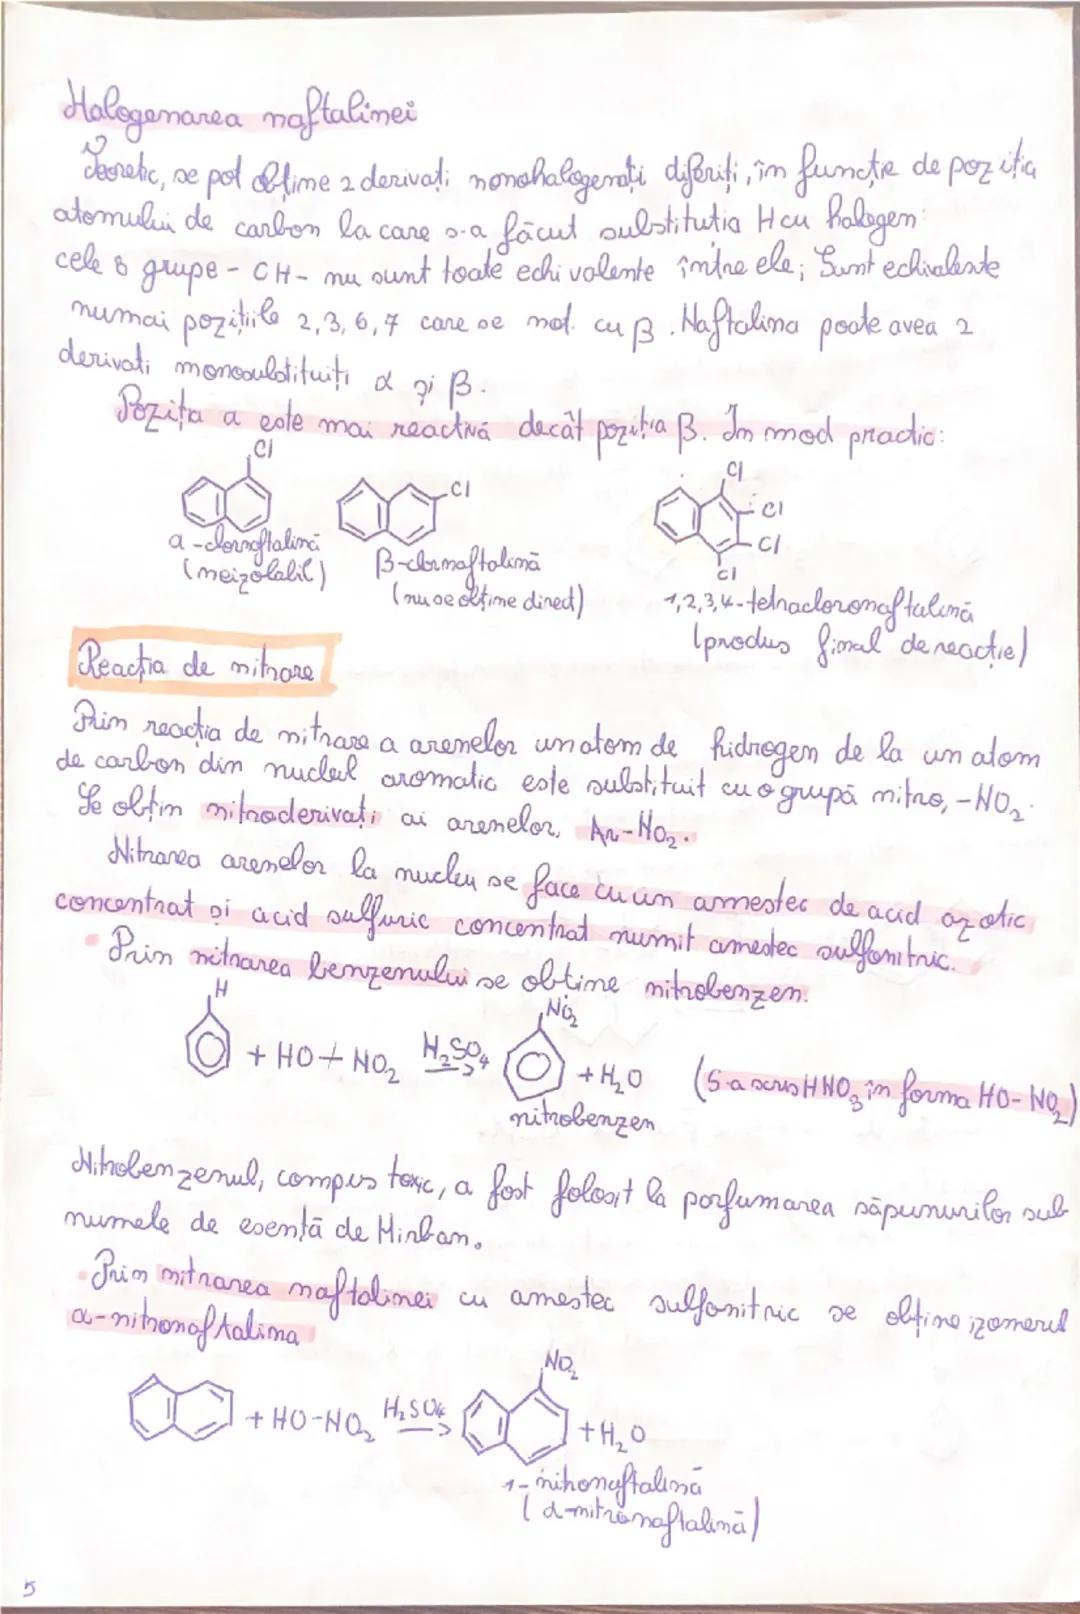 Halogenarea naftalinei
Teoretic, se pot obține 2 derivați monohalogenați diferiți, în funcție de poziția
atomului de carbon la care s-a făcut substituția H cu halogen:
cele 8 grupe - CH- nu sunt toate echivalente între ele; Sunt echivalente
numai pozițiile 2,3,6,7 care se not. cu β. Naftalina poate avea 2
derivati monosubstituiți α și β.
Poziția a este mai reactivă decât poziția β. În mod practic:
Cl
Cl
Cl
Cl
Cl
Cl
a-clornaftalină
β-clornaftalină
(nu se obține direct)
1,2,3,4-tetracloronaftalină
(produs final de reacție)
Reacția de nitrare
Prin reacția de nitrare a arenelor un atom de hidrogen de la un atom
de carbon din nucleul aromatic este substituit cu o grupă nitro, -NO₂.
Se obțin nitroderivați ai arenelor, Ar-NO₂.
Nitrarea arenelor la nucleu se face cu un amestec de acid azotic
concentrat și acid sulfuric concentrat numit amestec sulfonitric.
• Prin nitrarea benzenului se obține nitrobenzen.
H
NO₂
+ HO+NO₂ H₂SO₄ → + H₂O (S-a scris HNO₃ în forma HO-NO₂)
nitrobenzen
Nitrobenzenul, compus toxic, a fost folosit la parfumarea săpunurilor sub
numele de esență de Mirban.
• Prin nitrarea naftalinei cu amestec sulfonitric se obține izomerul
α-nitronaftalina
NO₂
+ HO-NO₂ H₂SO₄ → + H₂O
1-nitronaftalină
(α-nitronaftalină)
5